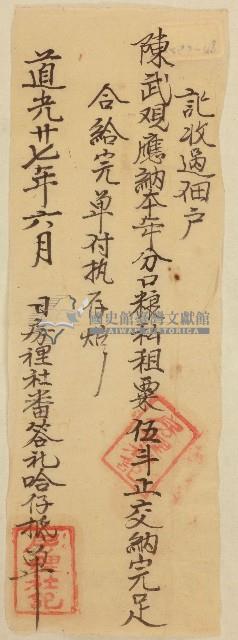 訖收過佃户
陳武观應納本年分口粮料租粟伍斗正交納完足
合給完单付执存炤
道光廿七年六月 日房裡社番答礼哈仔抵单
國史館臺灣文獻館